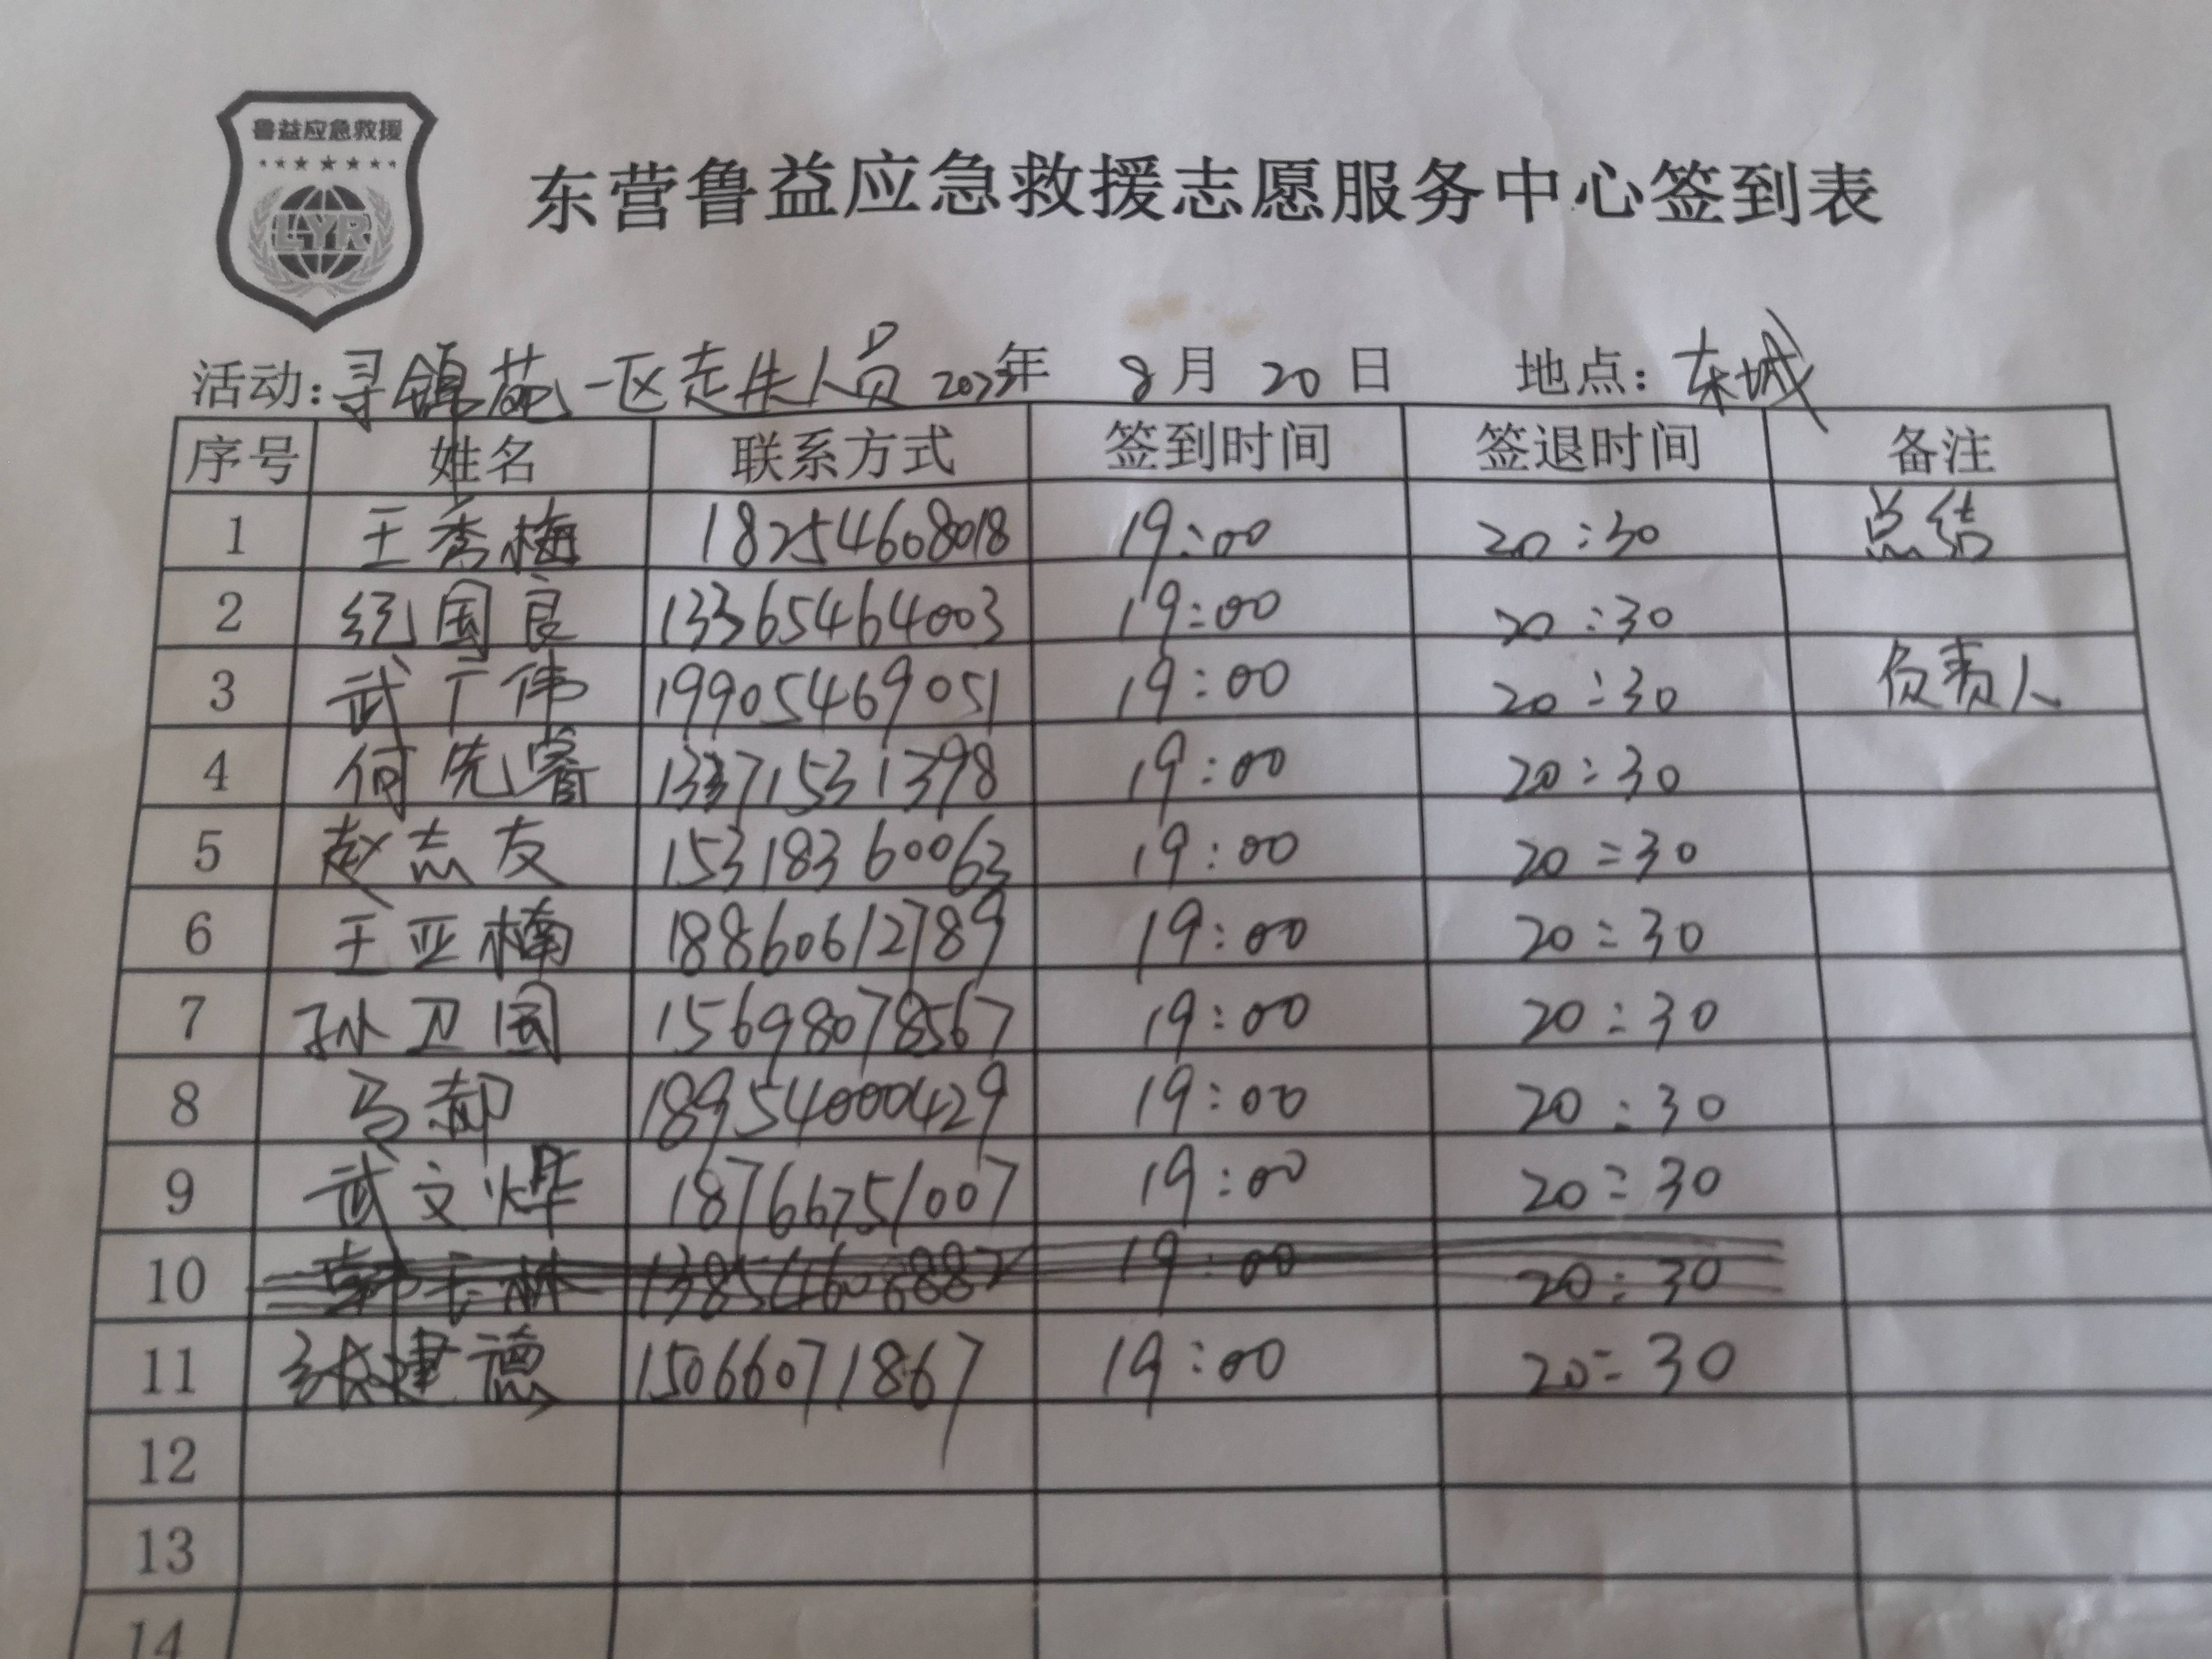 鲁益应急救援
LYR
东营鲁益应急救援志愿服务中心签到表
活动:寻锦苑一区走失人员 2023年 8月20日 地点:东城
序号 姓名 联系方式 签到时间 签退时间 备注
1 王秀梅 18254608018 19:00 20:30 总结
2 纪国良 13365464003 19:00 20:30
3 武广伟 19905469051 19:00 20:30 负责人
4 何先睿 13371531398 19:00 20:30
5 赵志友 15318360063 19:00 20:30
6 王亚楠 18860612789 19:00 20:30
7 孙卫国 15698078567 19:00 20:30
8 马郝 18954000429 19:00 20:30
9 武文烨 18766751007 19:00 20:30
10 19:00 20:30
11 张建德 15066071867 19:00 20:30
12
13
14